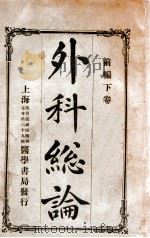 前編下卷
外科總論
上海
醫學書局發行